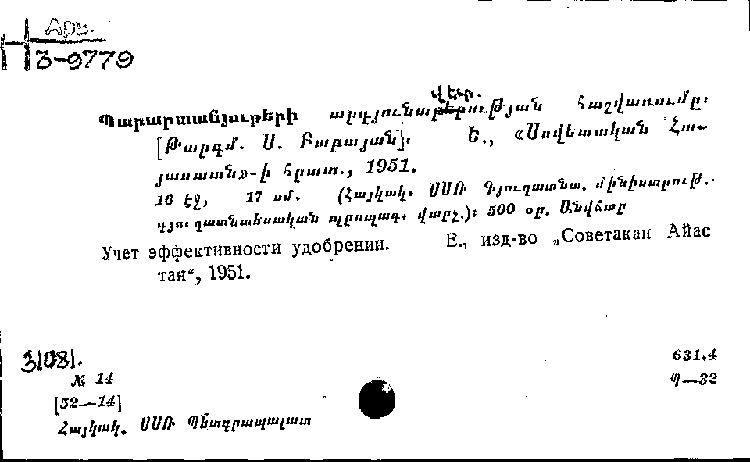 Арм.
3-9779
Պարարտանյութերի արդյունավետության հաշվառումը։
[Թարգմ. Ս. Բաբայան]։ Ե., «Սովետական Հա-
յաստան»-ի հրատ., 1951.
16 էջ, 17 սմ. (Հայկակ. ՍՍՌ Գյուղատնտ. մինիստրութ.
գյուղատնտեսական պրոպագ. վարչ.)։ 500 օր. Անվճար
Учет эффективности удобрении. Е., изд-во „Советакан Айас
тан“, 1951.
31081.
№ 14
[52—14]
Հայկակ. ՍՍՌ Պետգրապալատ
631.4
Պ—32